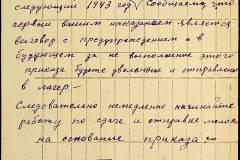 следующий 1943 год. Сообщаем, что
первым вашим наказанием является
выговор с предупреждением а в
будующем за не выполнение этого
приказа будете уволенные и отправлены
в лагер.—
Следовательно немедлено начинайте
работу по сдаче и отправке молока
на основание приказа